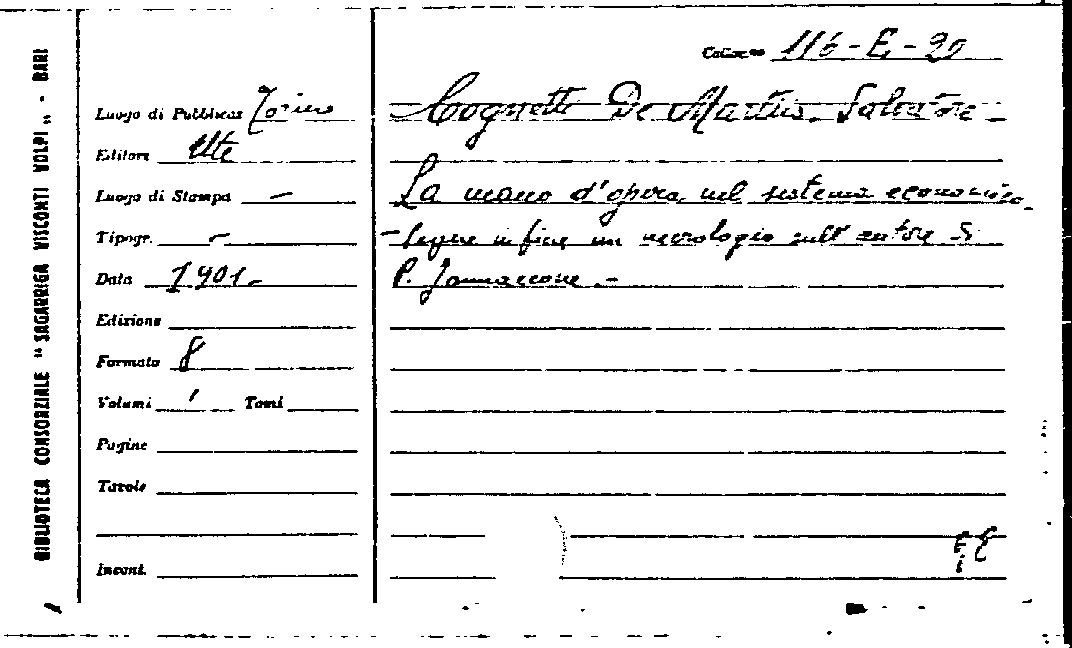 BIBLIOTECA CONSORZIALE "SAGARRIGA VISCONTI VOLPI" - BARI
Colloc. 116-E-20
Luogo di Pubblicaz Torino
Editore Ute
Luogo di Stampa —
Tipogr. —
Data 1901-
Edizione
Formato 8
Volumi 1 Tomi
Pagine
Tavole
Incont.
Cognetti De Martiis Salvatore -
La mano d'opera nel sistema economico.
- Segue in fine un necrologio sull'autore di
P. Jannaccone -